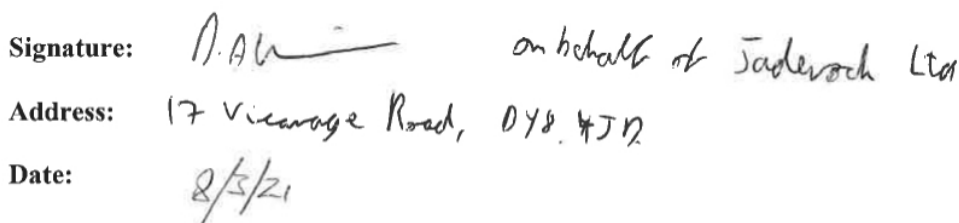 Signature: on behalf of Jaderock Ltd
Address: 17 Vicarage Road, DY8 4JD
Date: 8/3/21